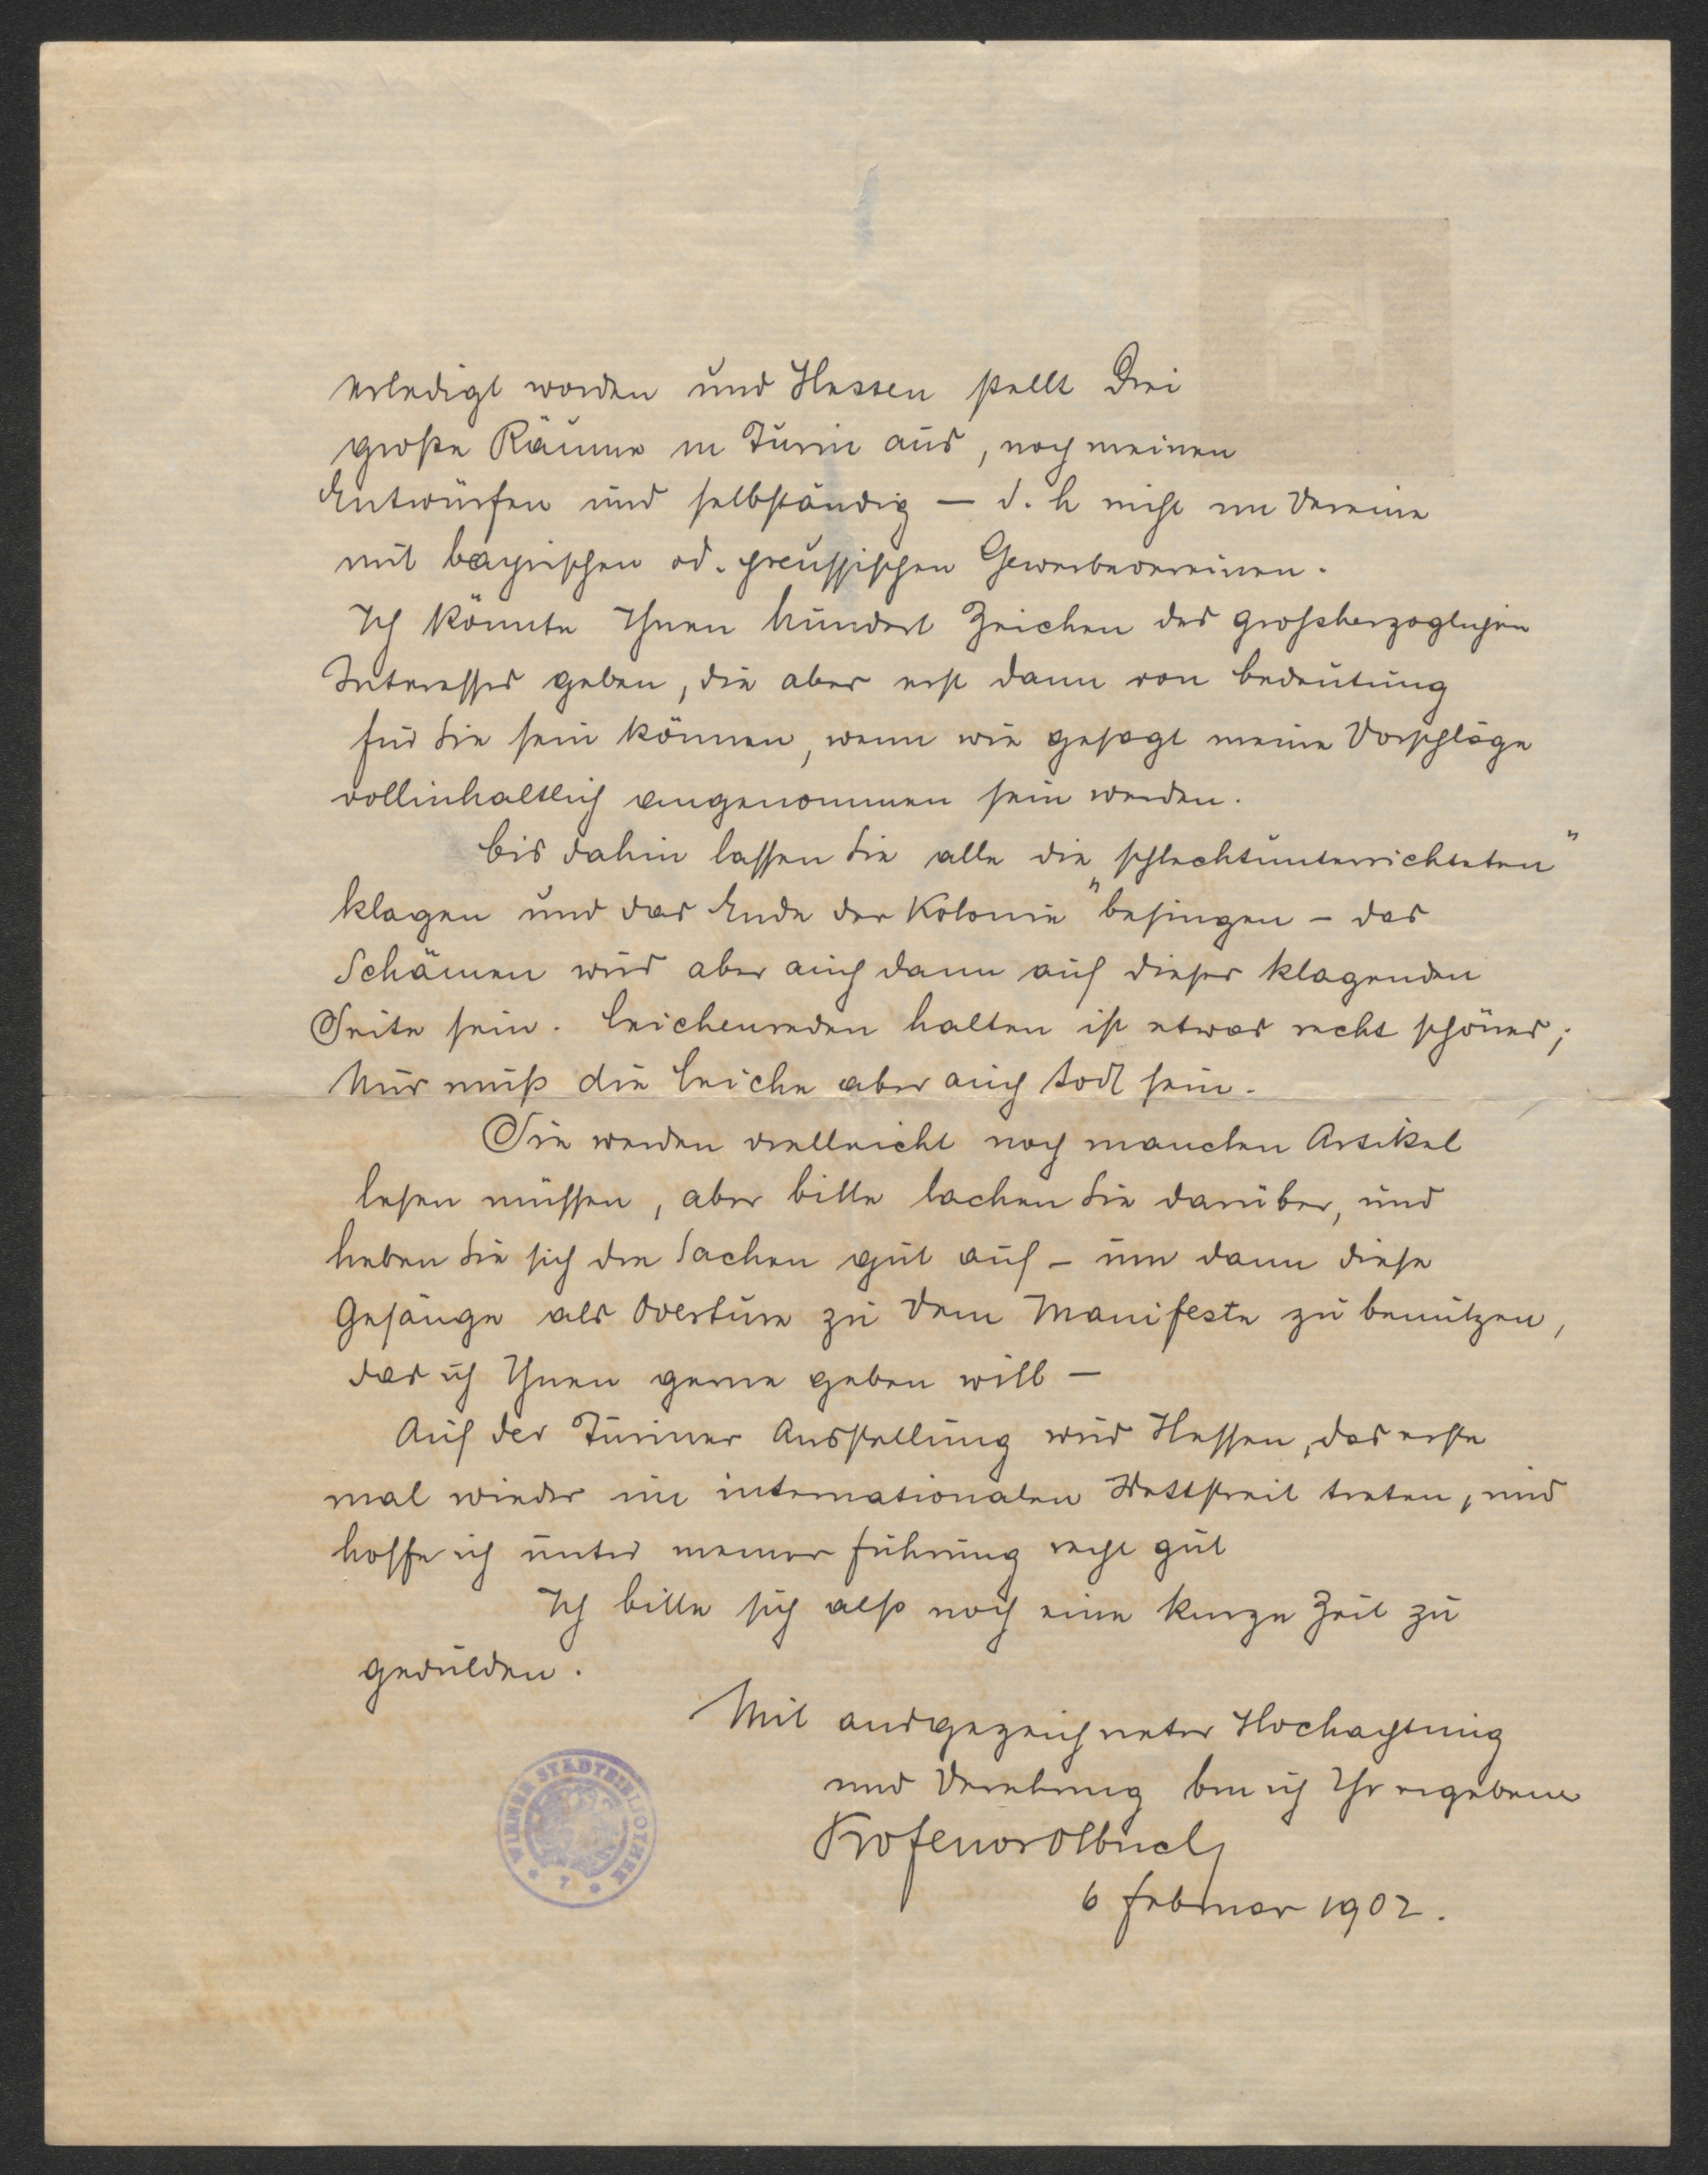 erledigt worden und Hessen stellt Drei
große Räume in Turin aus, nach meinen
Entwürfen und selbständig — d. h nicht im Vereine
mit bayrischen od. preussischen Gewerbevereinen.
Ich könnte Ihnen hundert Zeichen des großherzoglichen
Interesses geben, die aber erst dann von bedeutung
für Sie sein können, wenn wie gesagt meine Vorschläge
vollinhaltlich angenommen sein werden.
bis dahin lassen Sie alle die „schlechtunterrichteten"
klagen und das Ende der Kolonie "besingen – das
Schämen wird aber auch dann auf dieser klagenden
Seite sein. Leichenreden halten ist etwas recht schönes;
Nur muß die Leiche aber auch todt sein.
Sie werden vielleicht noch manchen Artikel
lesen müssen, aber bitte lachen Sie darüber, und
heben Sie sich die Sachen gut auf – um dann diese
Gesänge als Overture zu dem Manifeste zu benützen,
das ich Ihnen gerne geben will —
Auf der Turiner Ausstellung wird Hessen, das erste
mal wieder im internationalen Wettstreit treten, und
hoffe ich unter meiner führung recht gut
Ich bitte sich also noch eine kurze Zeit zu
gedulden.
Mit ausgezeichneter Hochachtung
und Verehrung bin ich Ihr ergebener
Professor Olbrich
6 februar 1902.
WIENER STADTBIBLIOTHEK